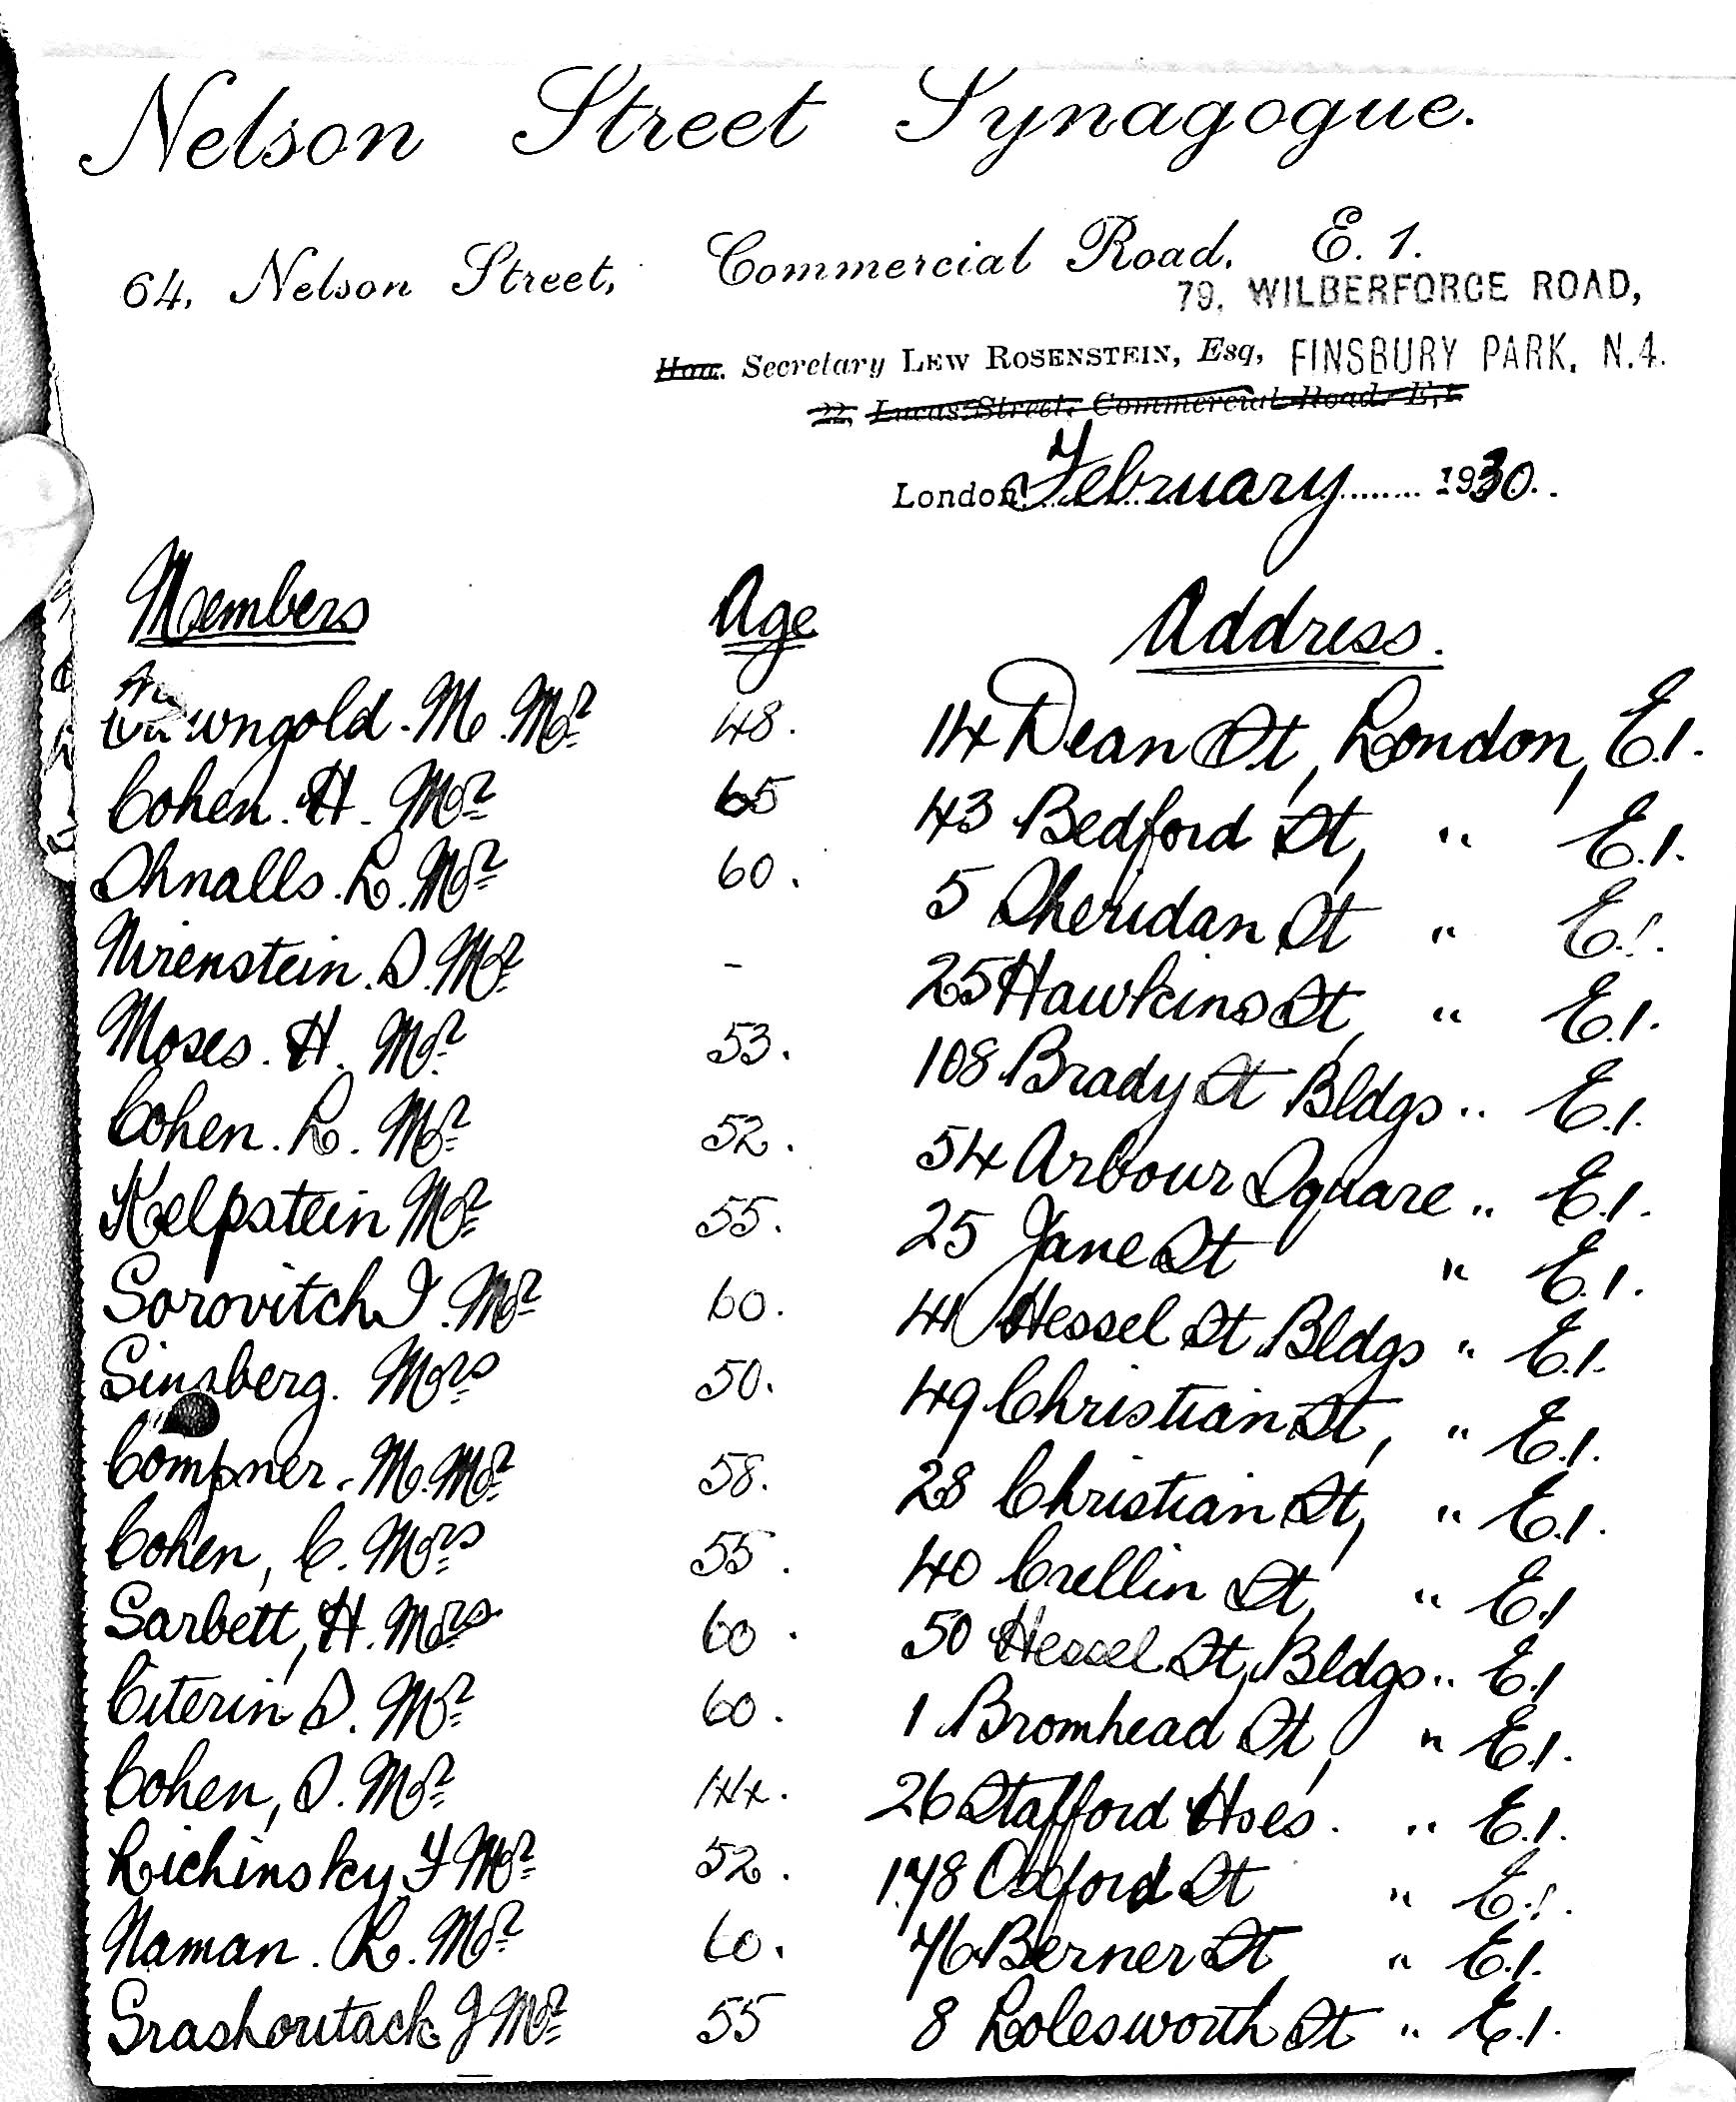 Nelson Street Synagogue.
64, Nelson Street, Commercial Road, E. 1.
79, WILBERFORCE ROAD,
Hon. Secretary LEW ROSENSTEIN, Esq, FINSBURY PARK, N.4.
22, Lucas Street, Commercial Road, E,1
London February 1930.
Members Age Address.
M. Mr 48. 114 Dean St, London, E.1.
Cohen. H. Mr 65 43 Bedford St, " E.1.
Shnalls. L. Mr 60. 5 Sheridan St " E.1.
Mirenstein. S. Mr - 25 Hawkins St, " E.1.
Moses. H. Mr 53. 108 Brady St Bldgs " E.1.
Cohen. L. Mr 52. 54 Arbour Square " E.1.
Kelpstein Mr 55. 25 Jane St " E.1.
Gorovitch I. Mr 60. 41 Hessel St Bldgs " E.1.
Ginsberg. Mrs 50. 49 Christian St, " E.1.
Compner. M. Mr 58. 28 Christian St, " E.1.
Cohen, C. Mrs 55. 40 Crellin St, " E.1
Garbett, H. Mrs. 60. 50 Hessel St, Bldgs " E.1
Citerin S. Mr 60. 1 Bromhead St, " E.1.
Cohen, S. Mr 44. 26 Stafford Hses. " E.1.
Lichinsky Mr 52. 178 Oxford St " E.1.
Naman. L. Mr 60. 76 Berner St, " E.1.
J Mr 55 8 Lolesworth St " E.1.